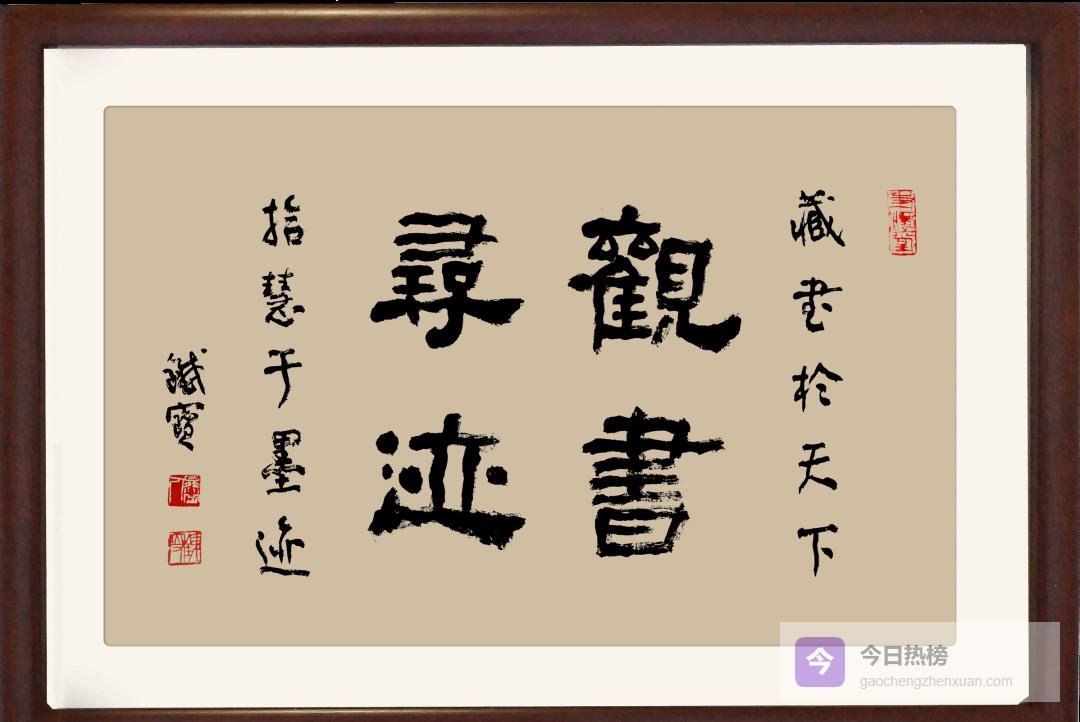 藏書於天下
觀書
尋迹
拾慧于墨迹
鐵寶
今
今日热榜
gaochengzhenxuan.com